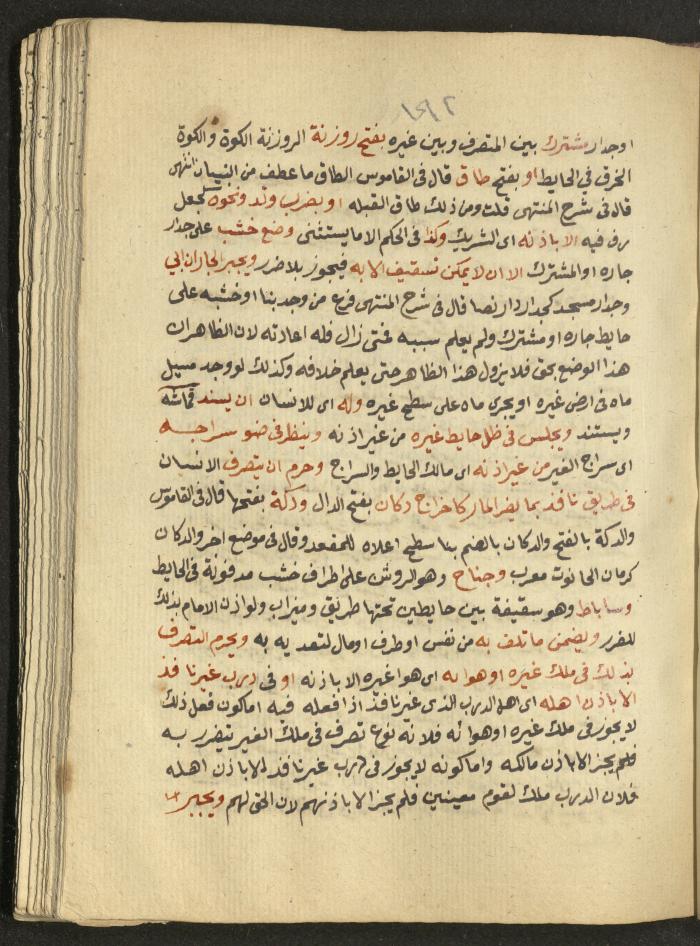 او جدار مشترك بين المتصرف وبين غيره بفتح روزنة الروزنة الكوة والكوة
الخرق في الحايط او بفتح طاق قال في القاموس الطاق ما عطف من البنيان انتهى
قال في شرح المنتهى قلت ومن ذلك طاق القبله او بضرب وتد ونحوه كجعل
رف فيه الا باذنه اى الشريك وكذا في الحكم الا ما يستثنى وضع خشب على جدار
جاره او المشترك الا ان لا يمكن تسقيف الا به فيجوز بلا ضرر ويجبر الجار ان ابي
وجدار مسجد كجدار دار نصا قال في شرح المنتهى فرع من وجد بنا او خشبه على
حايط جاره او مشترك ولم يعلم سببه فمتى زال فله اعادته لان الظاهر ان
هذا الوضع بحق فلا يزول هذا الظاهر حتى يعلم خلافه وكذلك لو وجد مسيل
ماء في ارض غيره او يجرى ماء على سطح غيره وله اى للانسان ان يسند قماشه
ويستند ويجلس في ظل حايط غيره من غير اذنه وينظر في ضو سراجه
اى سراج الغير من غير اذنه اى مالك الحايط والسراج وحرم ان يتصرف الانسان
في طريق نافذ بما يضر المار كاخراج دكان بفتح الدال ودكة بفتحها قال في القاموس
والدكة بالفتح والدكان بالضم بنا سطح اعلاه للمقعد وقال في موضع اخر والدكان
كرمان الحانوت معرب وجناح وهو الروشن على اطراف خشب مدفونة في الحايط
وساباط وهو سقيفة بين حايطين تحتها طريق وميزاب ولو اذن الامام بذلك
للضرر ويضمن ما تلف به من نفس او طرف او مال لتعديه به ويحرم التصرف
بذلك في ملك غيره او هوائه اى هوا غيره الا باذنه او في درب غير نافذ
الا باذن اهله اى اهل الدرب الذى غير نافذ اذا فعله فيه اما كون فعل ذلك
لا يجوز في ملك غيره او هوائه فلانه نوع تصرف في ملك الغير يتضرر به
فلم يجز الا باذن مالكه واما كونه لا يجوز في درب غير نافذ الا باذن اهله
فلان الدرب ملك لقوم معينين فلم يجز الا باذنهم لان الحق لهم ويجبر